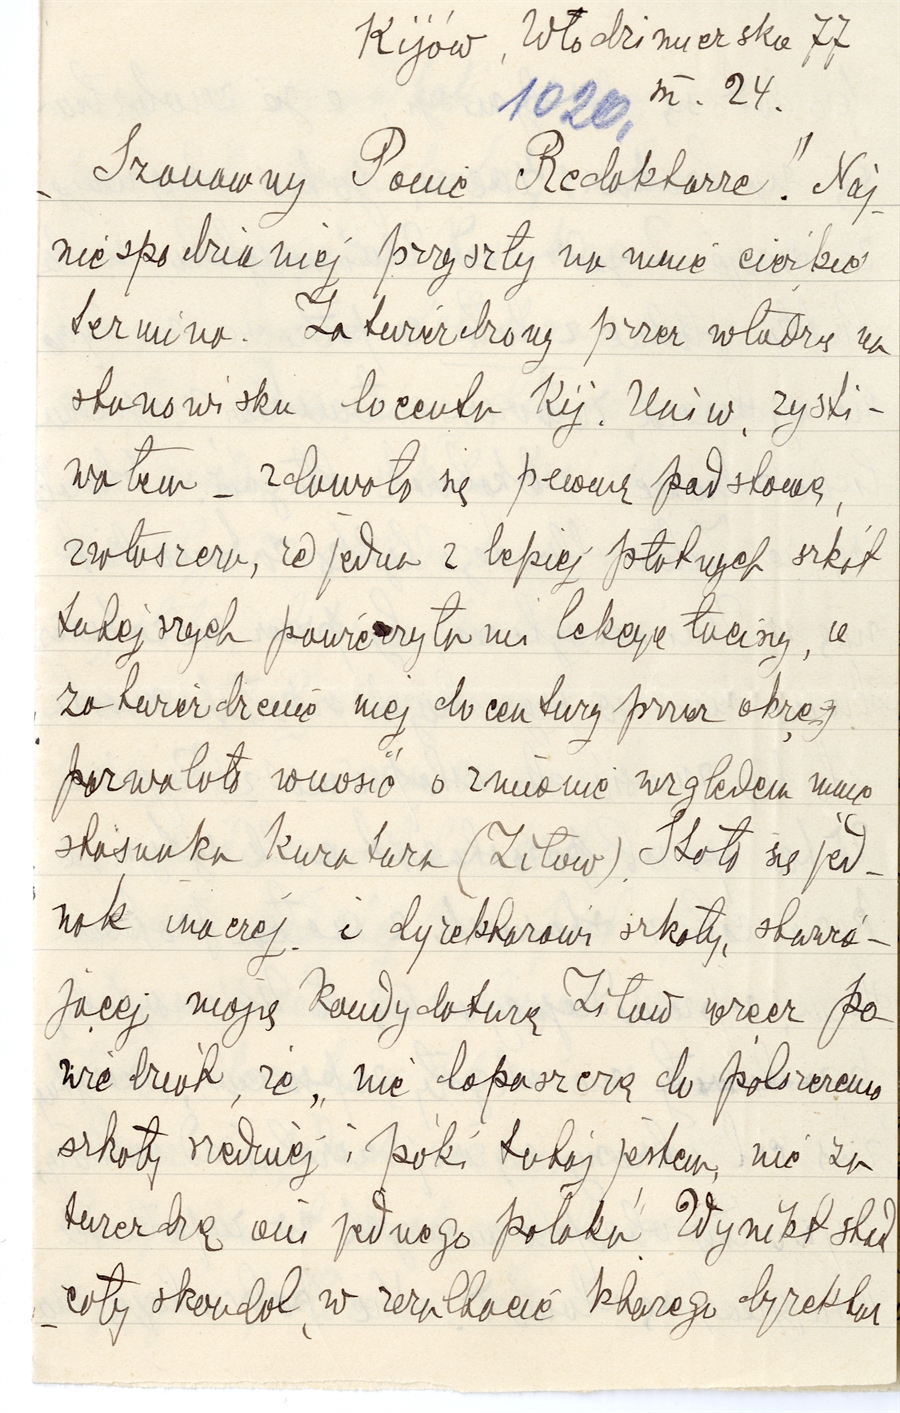 Kijów, Włodzimierska 77
m. 24.
1020.
Szanowny Panie Redaktorze! Naj-
niespodzianiej przyszły na mnie ciężkie
termina. Zatwierdzony przez władzę na
stanowisku docenta Kij. Uniw. zysti-
wałem – zdawało się pewną podstawę,
zwłaszcza, że jedna z lepiej płatnych szkół
tutejszych powierzyła mi lekcye łaciny, a
zatwierdzenie mej docentury przez okręg
pozwalało wnosić o zmianie względem mnie
stosunku kuratora (Ziłow). Stało się jed-
nak inaczej i dyrektorowi szkoły, stawia-
jącej moją kandydaturę Ziłow wręcz po
wiedział, że „nie dopuszczę do polszczenia
szkoły średniej i póki tutaj jestem, nie za
twierdzę ani jednego polaka" Wynikł stąd
cały skandal, w rezultacie którego dyrektor